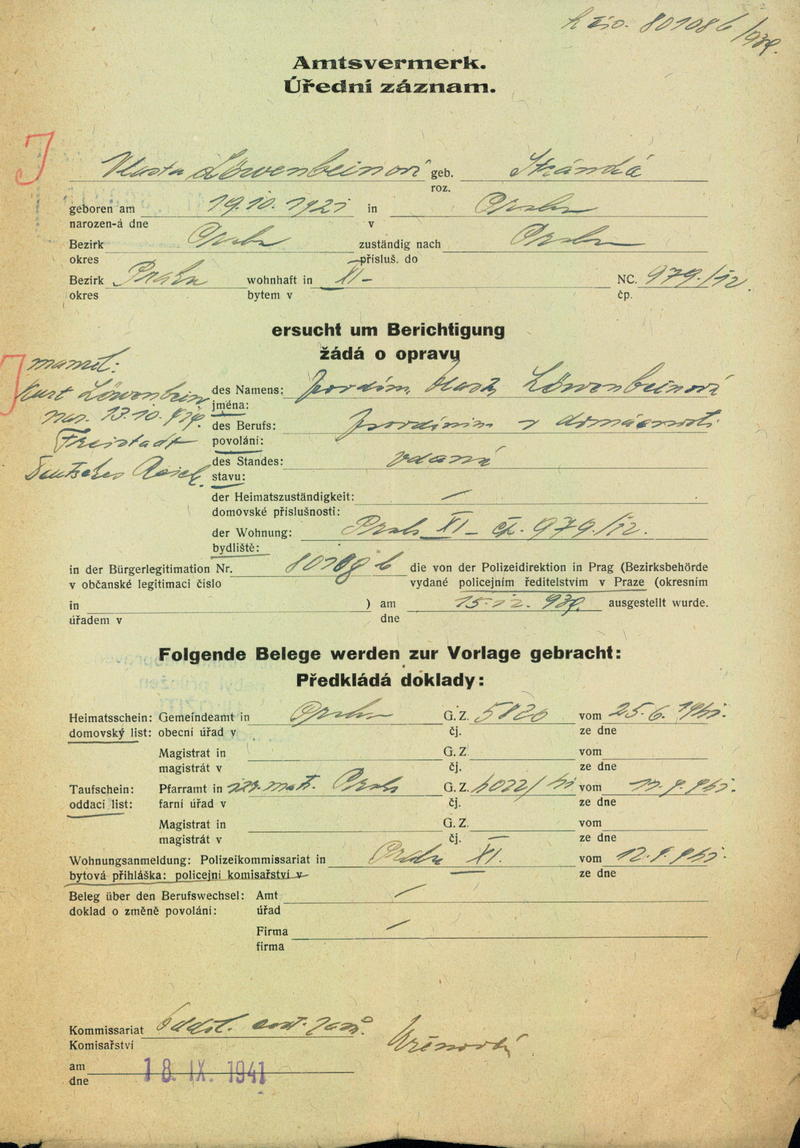 801086/939.
Amtsvermerk.
Úřední záznam.
J
Vlasta Löwenbeinová geb. Stránská
roz.
geboren am 19.10.1921 in Praha
narozen-á dne v
Bezirk Praha zuständig nach Praha
okres přísluš. do
Bezirk Praha wohnhaft in XI- NC. 979/12.
okres bytem v čp.
ersucht um Berichtigung
žádá o opravu
J
manžel:
Kurt Löwenbein
nar. 13.10.
Freistadt
Deutsches Reich.
des Namens: Vlasta Löwenbeinová
jména:
des Berufs: v domácnosti
povolání:
des Standes: vdaná
stavu:
der Heimatszuständigkeit: –
domovské příslušnosti:
der Wohnung: Praha XI – čp. 979/12.
bydliště:
in der Bürgerlegitimation Nr. die von der Polizeidirektion in Prag (Bezirksbehörde
v občanské legitimaci číslo vydané policejním ředitelstvím v Praze (okresním
in ) am 15.12.939. ausgestellt wurde.
úřadem v dne
Folgende Belege werden zur Vorlage gebracht:
Předkládá doklady:
Heimatsschein: Gemeindeamt in Praha G. Z. 5820 vom 25.6.1941.
domovský list: obecní úřad v čj. ze dne
Magistrat in G. Z. vom
magistrát v čj. ze dne
Taufschein: Pfarramt in Praha G. Z. vom
oddací list: farní úřad v čj. ze dne
Magistrat in G. Z. vom
magistrát v čj. ze dne
Wohnungsanmeldung: Polizeikommissariat in Praha XI. vom 12.9.941.
bytová přihláška: policejní komisařství v ze dne
Beleg über den Berufswechsel: Amt –
doklad o změně povolání: úřad
Firma –
firma
Kommissariat
Komisařství
am 18. IX. 1941
dne